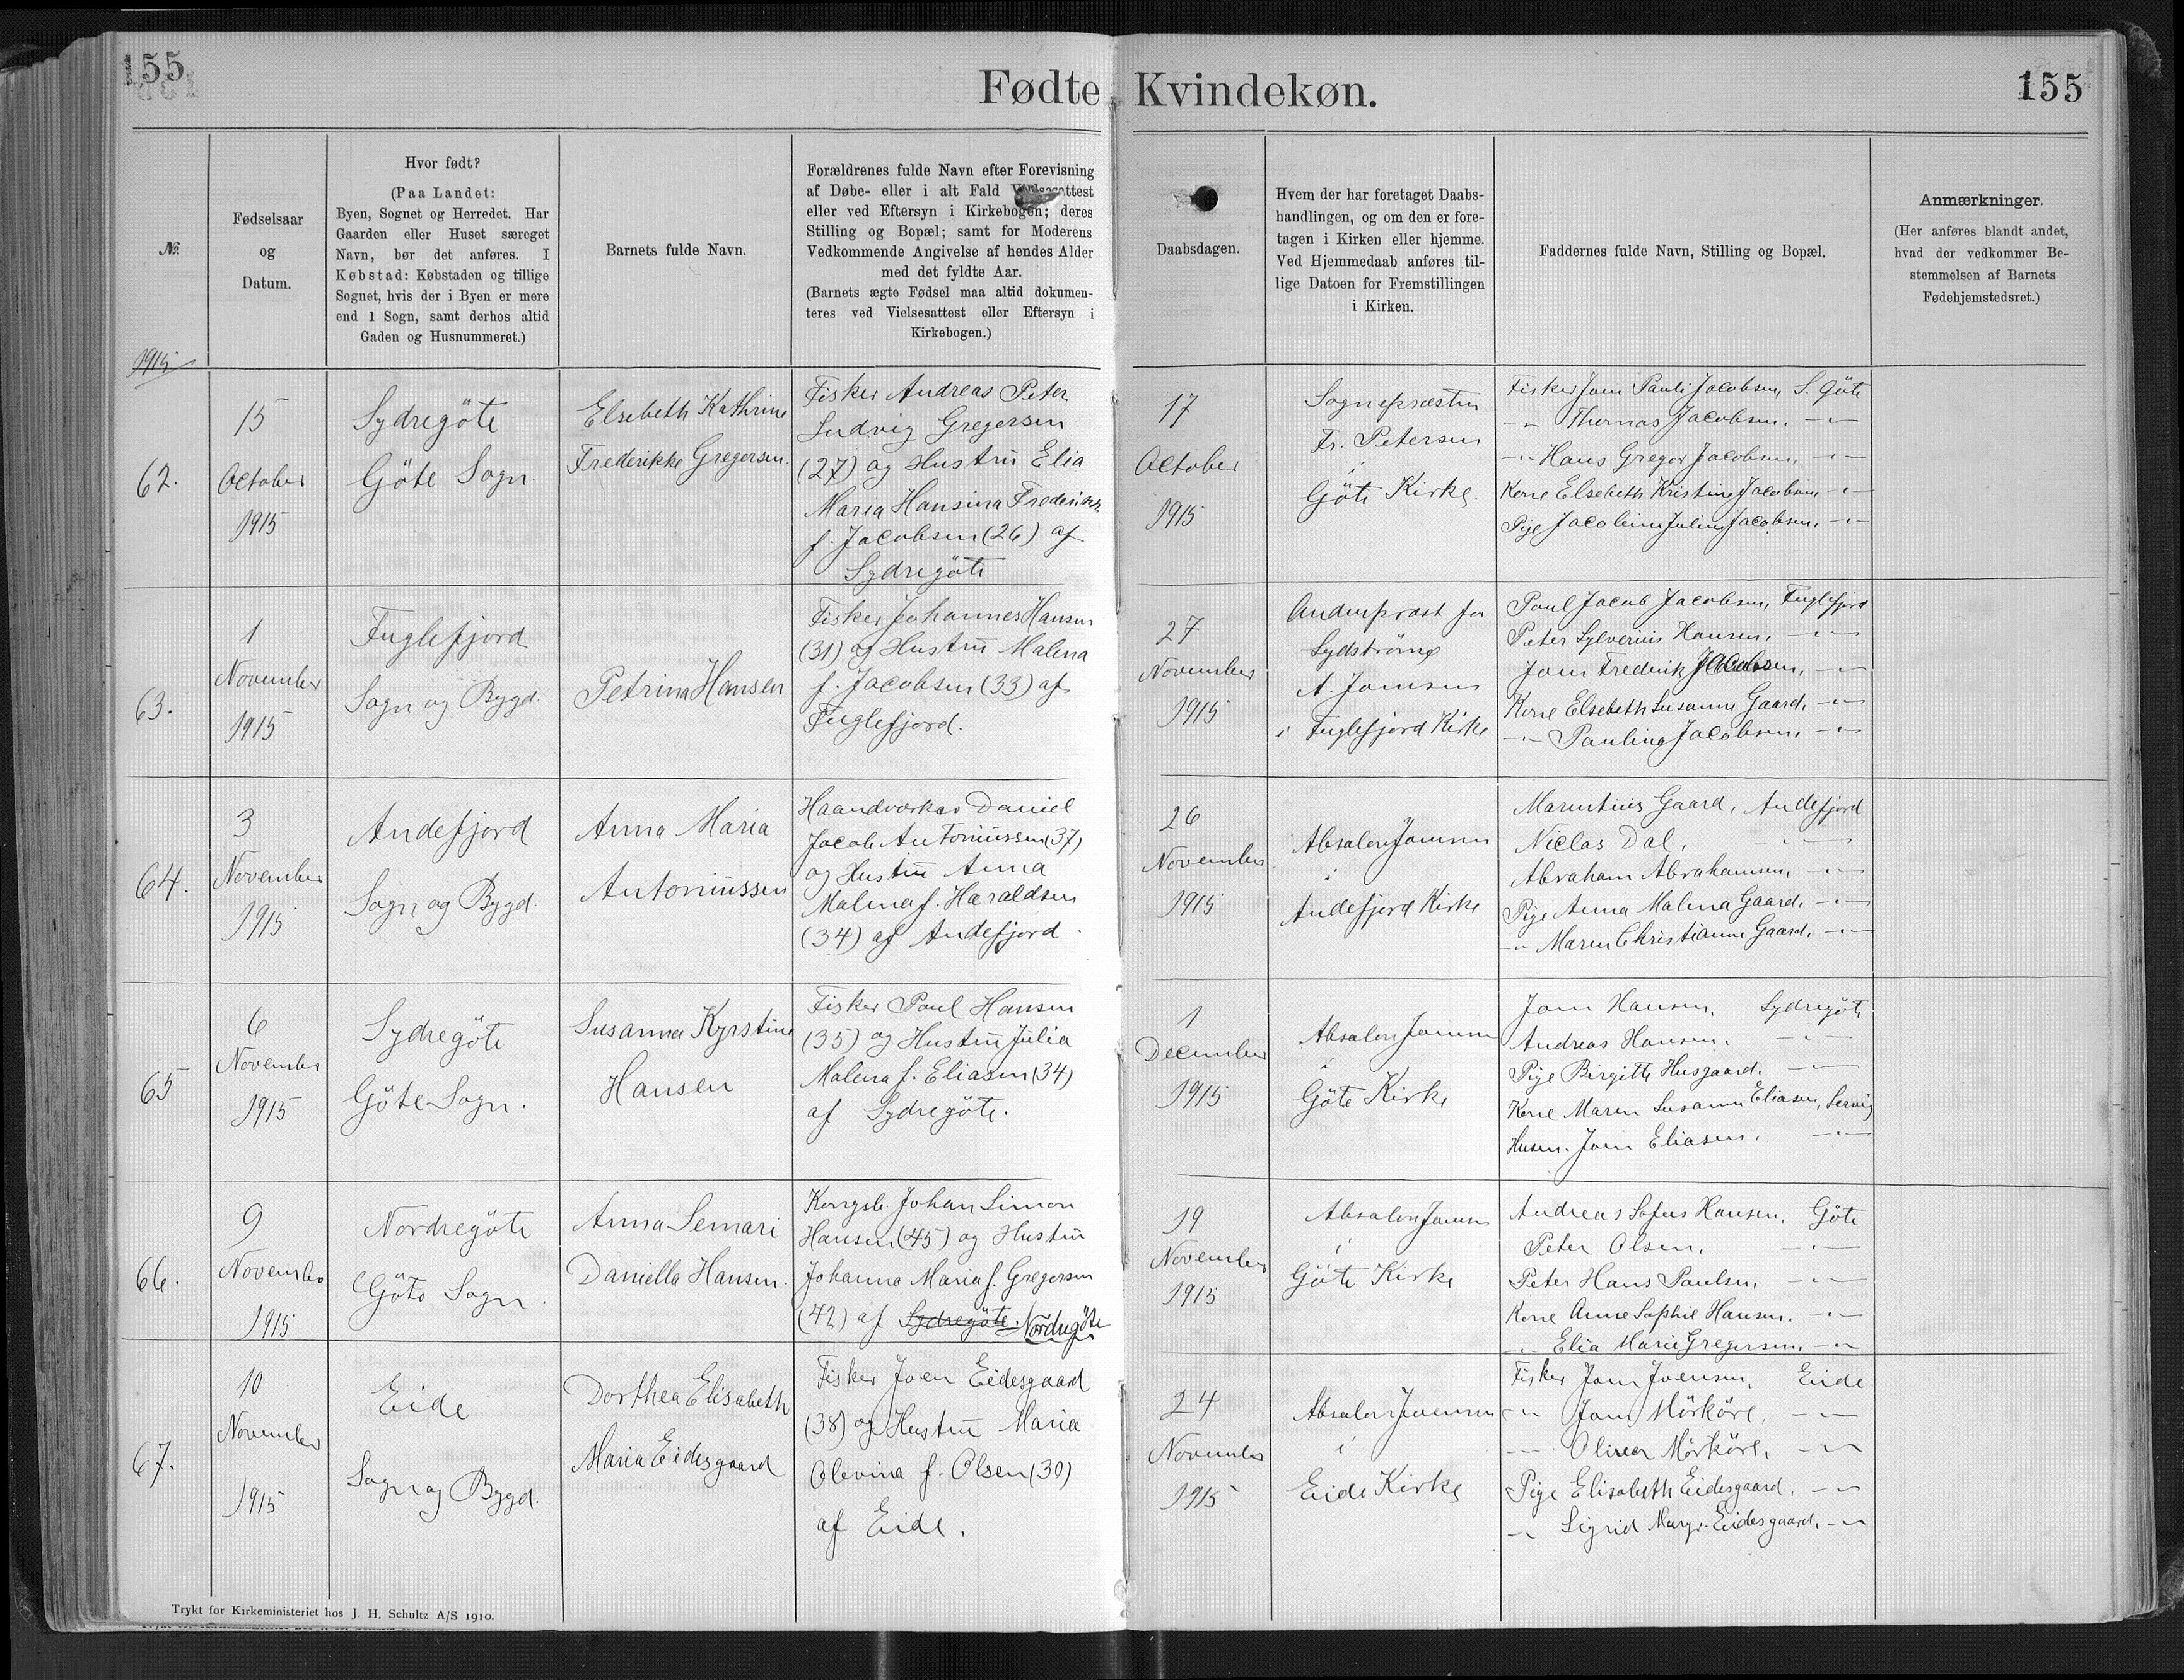 155
Fødte Kvindekøn.
155
№
Fødselsaar
og
Datum.
Hvor født?
(Paa Landet:
Byen, Sognet og Herredet. Har
Gaarden eller Huset særeget
Navn, bør det anføres. I
Købstad: Købstaden og tillige
Sognet, hvis der i Byen er mere
end 1 Sogn, samt derhos altid
Gaden og Husnummeret.)
Barnets fulde Navn.
Forældrenes fulde Navn efter Forevisning
af Døbe- eller i alt Fald Vielsesattest
eller ved Eftersyn i Kirkebogen; deres
Stilling og Bopæl; samt for Moderens
Vedkommende Angivelse af hendes Alder
med det fyldte Aar.
(Barnets ægte Fødsel maa altid dokumen-
teres ved Vielsesattest eller Eftersyn i
Kirkebogen.)
Daabsdagen.
Hvem der har foretaget Daabs-
handlingen, og om den er fore-
tagen i Kirken eller hjemme.
Ved Hjemmedaab anføres til-
lige Datoen for Fremstillingen
i Kirken.
Faddernes fulde Navn, Stilling og Bopæl.
Anmærkninger.
(Her anføres blandt andet,
hvad der vedkommer Be-
stemmelsen af Barnets
Fødehjemstedsret.)
1915
62.
15
October
1915
Sydregöte
Göte Sogn.
Elsebeth Kathrine
Frederikke Gregersen.
Fisker Andreas Peter
Ludvig Gregersen
(27) og Hustrü Elia
Maria Hansina Frederikke
f. Jacobsen (26) af
Sydregöte
17
October
1915
Sognepræsten
Fr. Petersen
i
Göte Kirke.
Fisker Joen Pauli Jacobsen, S. Göte
-"- Thomas Jacobsen, -"-
-"- Hans Gregor Jacobsen, -"-
Kone Elsebeth Kristine Jacobsen -"-
Pige Jacobine Juline Jacobsen, -"-
63.
1
November
1915
Fuglefjord
Sogn og Bygd.
Petrina Hansen
Fisker Johannes Hansen
(31) og Hustrü Malena
f. Jacobsen (33) af
Fuglefjord.
27
November
1915
Andenpræst for
Sydströmø
A. Joensen
i Fuglefjord Kirke
Poul Jacob Jacobsen, Fuglefjord
Peter Sylverius Hansen, -"-
Joen Frederik Jacobsen, -"-
Kone Elsebeth Susanne Gaard, -"-
-"- Pauline Jacobsen, -"-
64.
3
November
1915
Andefjord
Sogn og Bygd.
Anna Maria
Antoniüssen
Haandværker Daniel
Jacob Antoniüssen (37)
og Hustrü Anna
Malena f. Haraldsen
(34) af Andefjord.
26
November
1915
Absalon Joensen
i
Andefjord Kirke
Marentius Gaard, Andefjord
Niclas Dal, -"-
Abraham Abrahamsen, -"-
Pige Anna Malena Gaard, -"-
-"- Maren Christianne Gaard, -"-
65
6
November
1915
Sydregöte
Göte Sogn.
Susanna Kyrstine
Hansen
Fisker Poul Hansen
(35) og Hustrü Julia
Malena f. Eliasen (34)
af Sydregöte.
1
December
1915
Absalon Joensen
i
Göte Kirke
Joen Hansen, Sydregöte
Andreas Hansen, -"-
Pige Birgitte Husgaard, -"-
Kone Maren Susanne Eliasen, Lervig
Husm. Joen Eliasen, -"-
66.
9
November
1915
Nordregöte
Göte Sogn.
Anna Semari
Daniella Hansen.
Kongsb. Johan Simon
Hansen (45) og Hustrü
Johanna Maria f. Gregersen
(42) af Sydregöte. Nordregöte
19
November
1915
Absalon Joensen
i
Göte Kirke
Andreas Sofus Hansen, Göte
Peter Olsen, -"-
Peter Hans Paulsen, -"-
Kone Anne Sophie Hansen, -"-
-"- Elia Marie Gregersen, -"-
67.
10
November
1915
Eide
Sogn og Bygd.
Dorthea Elisabeth
Maria Eidesgaard
Fisker Joen Eidesgaard
(38) og Hustrü Maria
Olevina f. Olsen (30)
af Eide.
24
November
1915
Absalon Joensen
i
Eide Kirke
Fisker Joen Joensen, Eide
-"- Joen Mörköre, -"-
-"- Oliver Mörköre, -"-
Pige Elisabeth Eidesgaard, -"-
-"- Sigrid Margr. Eidesgaard, -"-
Trykt for Kirkeministeriet hos J. H. Schultz A/S 1910.